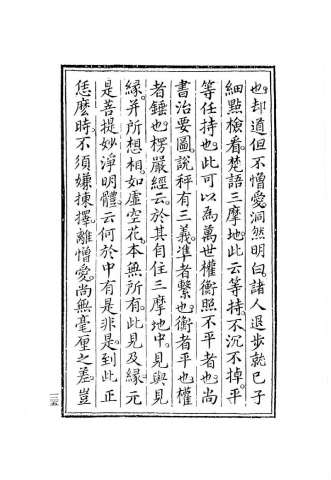 也。却道但不憎愛洞然明白諸人退步就己子
細點檢看。梵語三摩地。此云等持。不沉不掉。平
等任持也。此可以為萬世權衡照不平者也。尚
書治要圖。說秤有三義。準者繫也。衡者平也。權
者錘也。楞嚴經云。於其自住三摩地中。見與見
緣。并所想相。如虛空花。本無所有。此見及緣。元
是菩提妙淨明體。云何於中有是非是。到此正
恁麼時。不須嫌揀擇。離憎愛。尚無毫厘之差。豈
三五